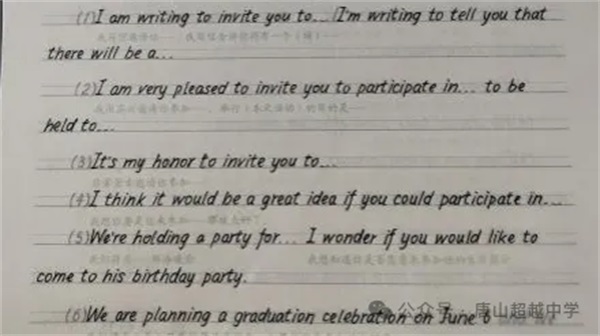 (1)I am writing to invite you to... /I'm writing to tell you that
there will be a...
(2)I am very pleased to invite you to participate in... to be
held to...
(3)It's my honor to invite you to...
(4)I think it would be a great idea if you could participate in...
(5)We're holding a party for... I wonder if you would like to
come to his birthday party.
(6)We are planning a graduation celebration on June 6
公众号 · 唐山超越中学